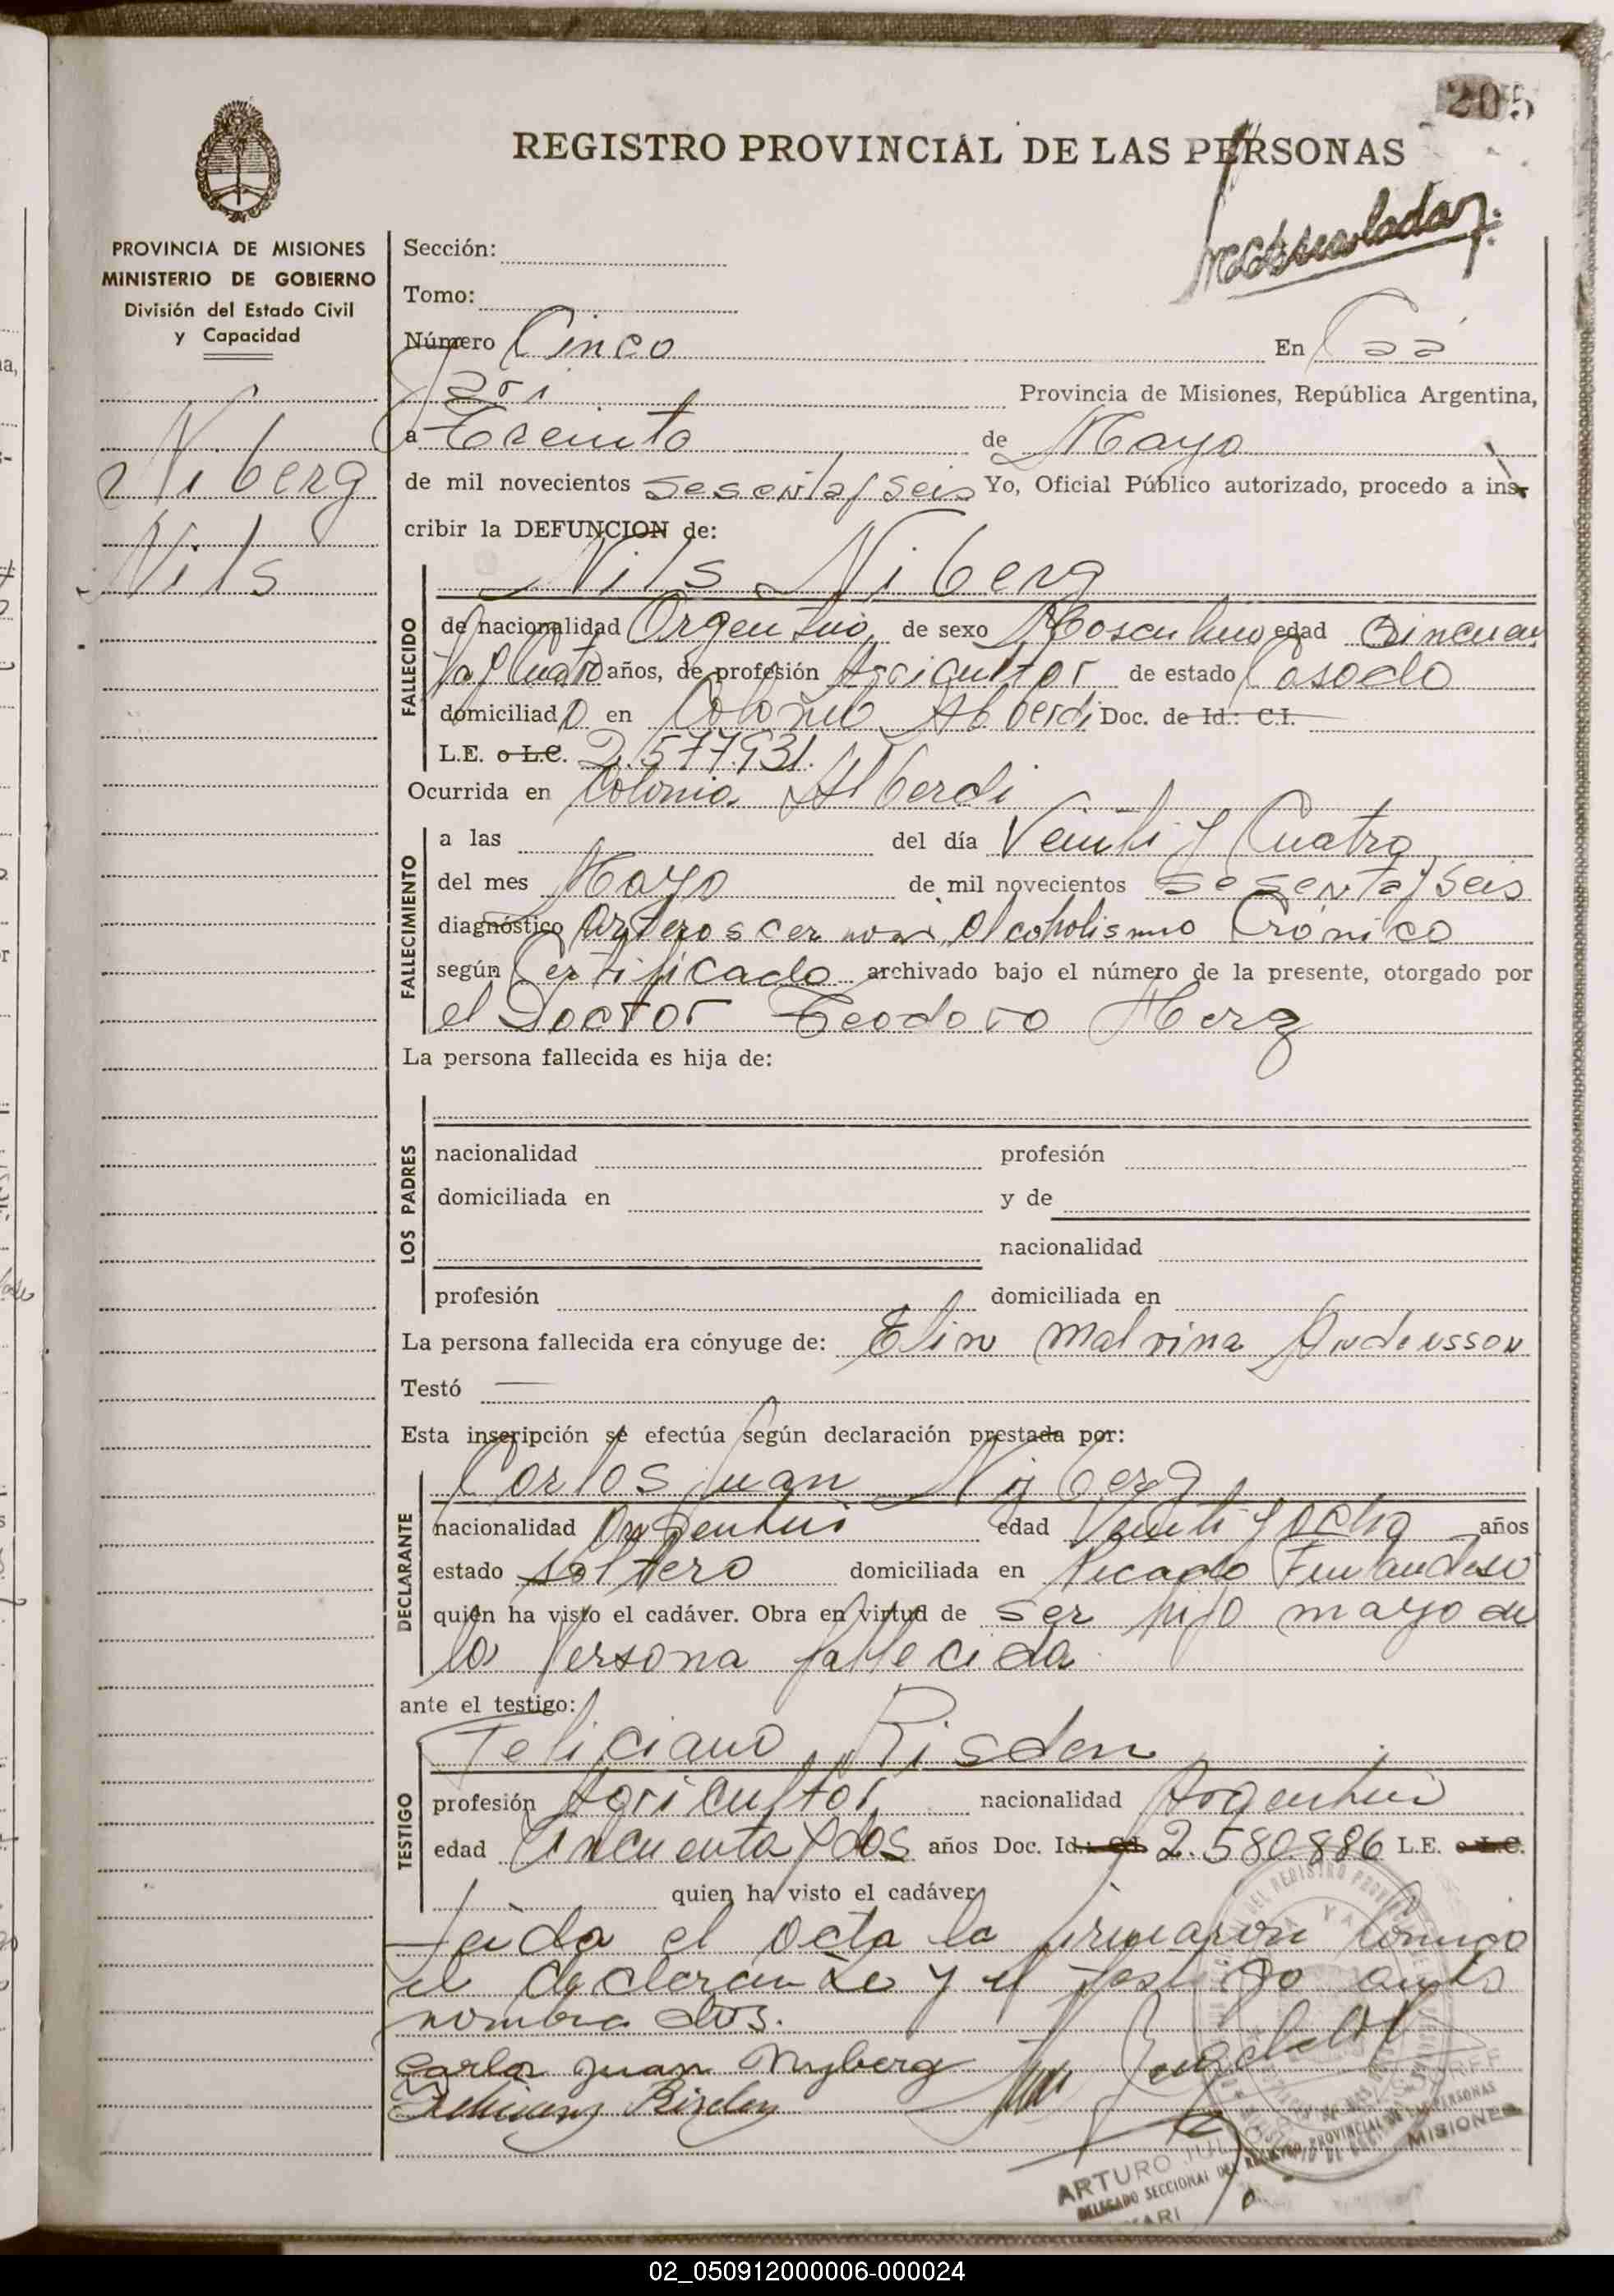 205
REGISTRO PROVINCIAL DE LAS PERSONAS
PROVINCIA DE MISIONES
MINISTERIO DE GOBIERNO
División del Estado Civil
y Capacidad
Niberg
Nils
Sección:
Tomo:
Número Cinco En Caá
Yarí Provincia de Misiones, República Argentina,
a Treinta de Mayo
de mil novecientos Sesenta y Seis Yo, Oficial Público autorizado, procedo a ins-
cribir la DEFUNCION de:
Nils Niberg
FALLECIDO
de nacionalidad Argentino, de sexo Masculino edad Cincuen
ta y Cuatro años, de profesión Agricultor de estado Casado
domiciliado en Colonia Alberdi Doc. de Id.: C.I.
L.E. o L.C. 2.577.931.
Ocurrida en Colonia Alberdi
FALLECIMIENTO
a las del día Veinti y Cuatro
del mes Mayo de mil novecientos Sesenta y Seis
diagnóstico alcoholismo Crónico
según Certificado archivado bajo el número de la presente, otorgado por
el Doctor Teodoro Herz
La persona fallecida es hija de:
LOS PADRES
nacionalidad profesión
domiciliada en y de
nacionalidad
profesión domiciliada en
La persona fallecida era cónyuge de: Elin Malvina Andersson
Testó —
Esta inscripción se efectúa según declaración prestada por:
Carlos Juan Niberg
DECLARANTE
nacionalidad Argentino edad Veinti y ocho años
estado Soltero domiciliada en Picada Finlandesa
quién ha visto el cadáver. Obra en virtud de ser hijo mayo de
la Persona fallecida
ante el testigo:
Feliciano Risden
TESTIGO
profesión Agricultor nacionalidad Argentino
edad Cincuenta y dos años Doc. Id.: C.I. 2.580.886 L.E. o L.C.
quien ha visto el cadáver
Leída el acta la firmaron Conmigo
el declarante y el testigo antes
nombrados.
Carlos Juan Nyberg
ARTURO
DELEGADO SECCIONAL DEL REGISTRO PROVINCIAL DE LAS PERSONAS
MISIONES
02_050912000006-000024